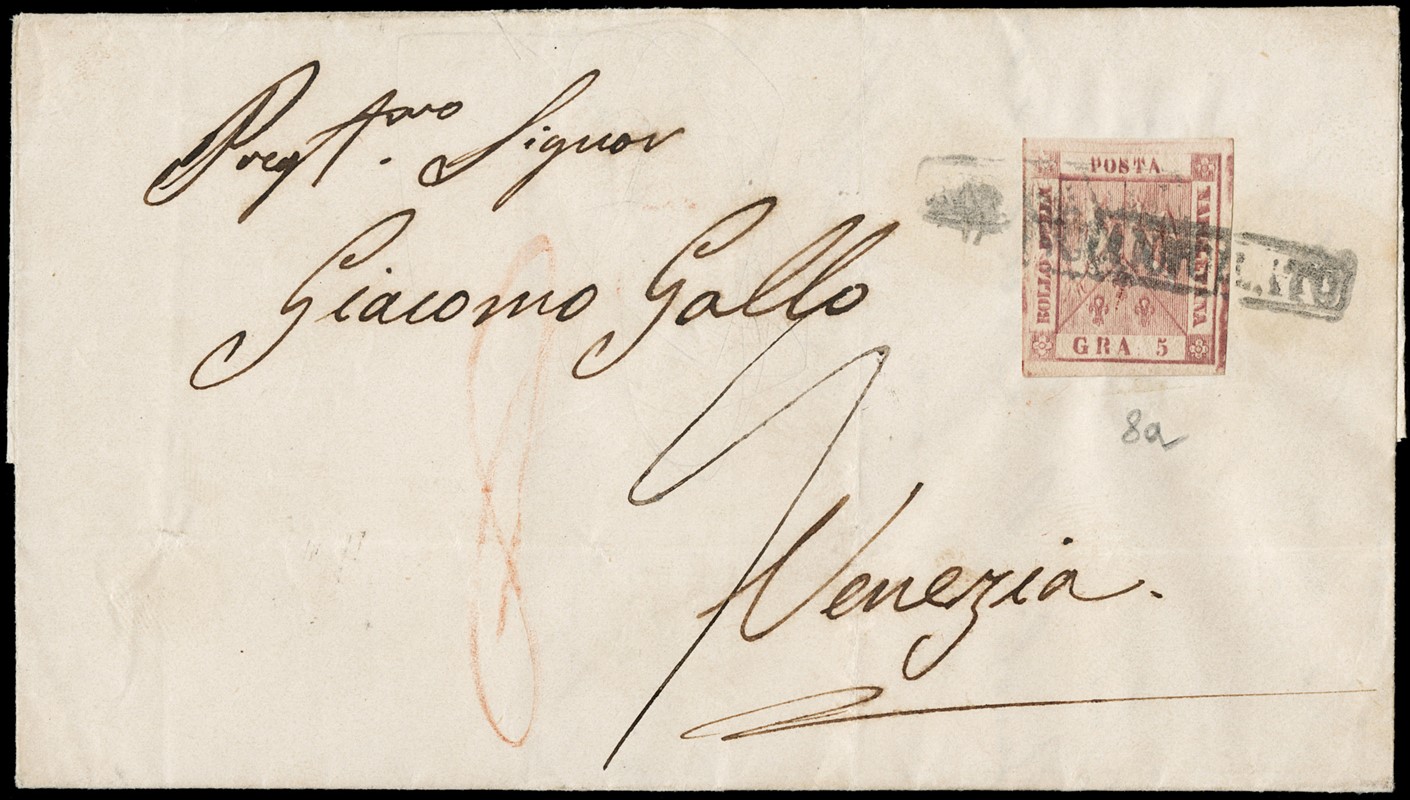 Preg.mo Signor
Giacomo Gallo
Venezia.
POSTA
BOLLO DELLA
NAPOLETANA
GRA 5
ANNULLATO
8a